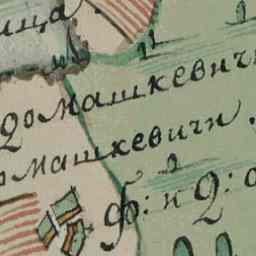 ица
домашкевичи
омашкевичи.
ф: и д: о